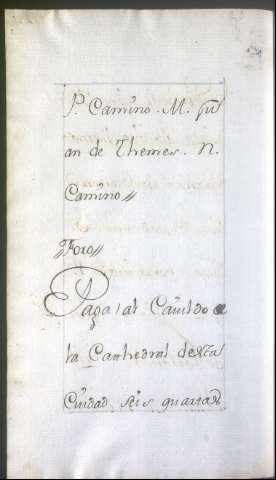 P. Camino. M. Ju
an de Themes. N.
Camino//
//Foro//
Paga, al Cavildo de
la Cathedral desta
Ciudad seis quartas